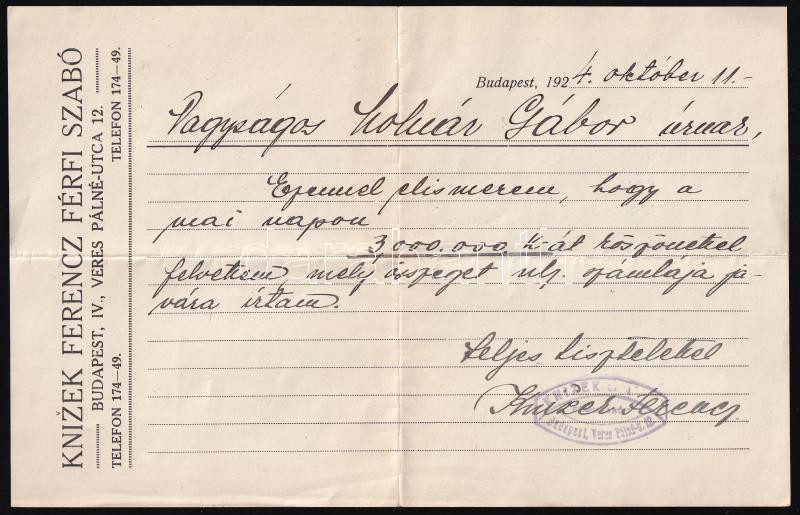 KNIŽEK FERENCZ FÉRFI SZABÓ
BUDAPEST, IV., VERES PÁLNÉ-UTCA 12.
TELEFON 174—49. TELEFON 174—49.
Budapest, 1924. október 11.-
Nagyságos Molnár Gábor úrnak,
Ezennel elismerem, hogy a
mai napon
3000.000. K-át köszönettel
felvettem, mely összeget nb. számlája ja-
vára írtam.
Teljes tisztelettel
Knižek Ferencz
KNIŽEK
Budapest, Veres Pálné-u. 12.